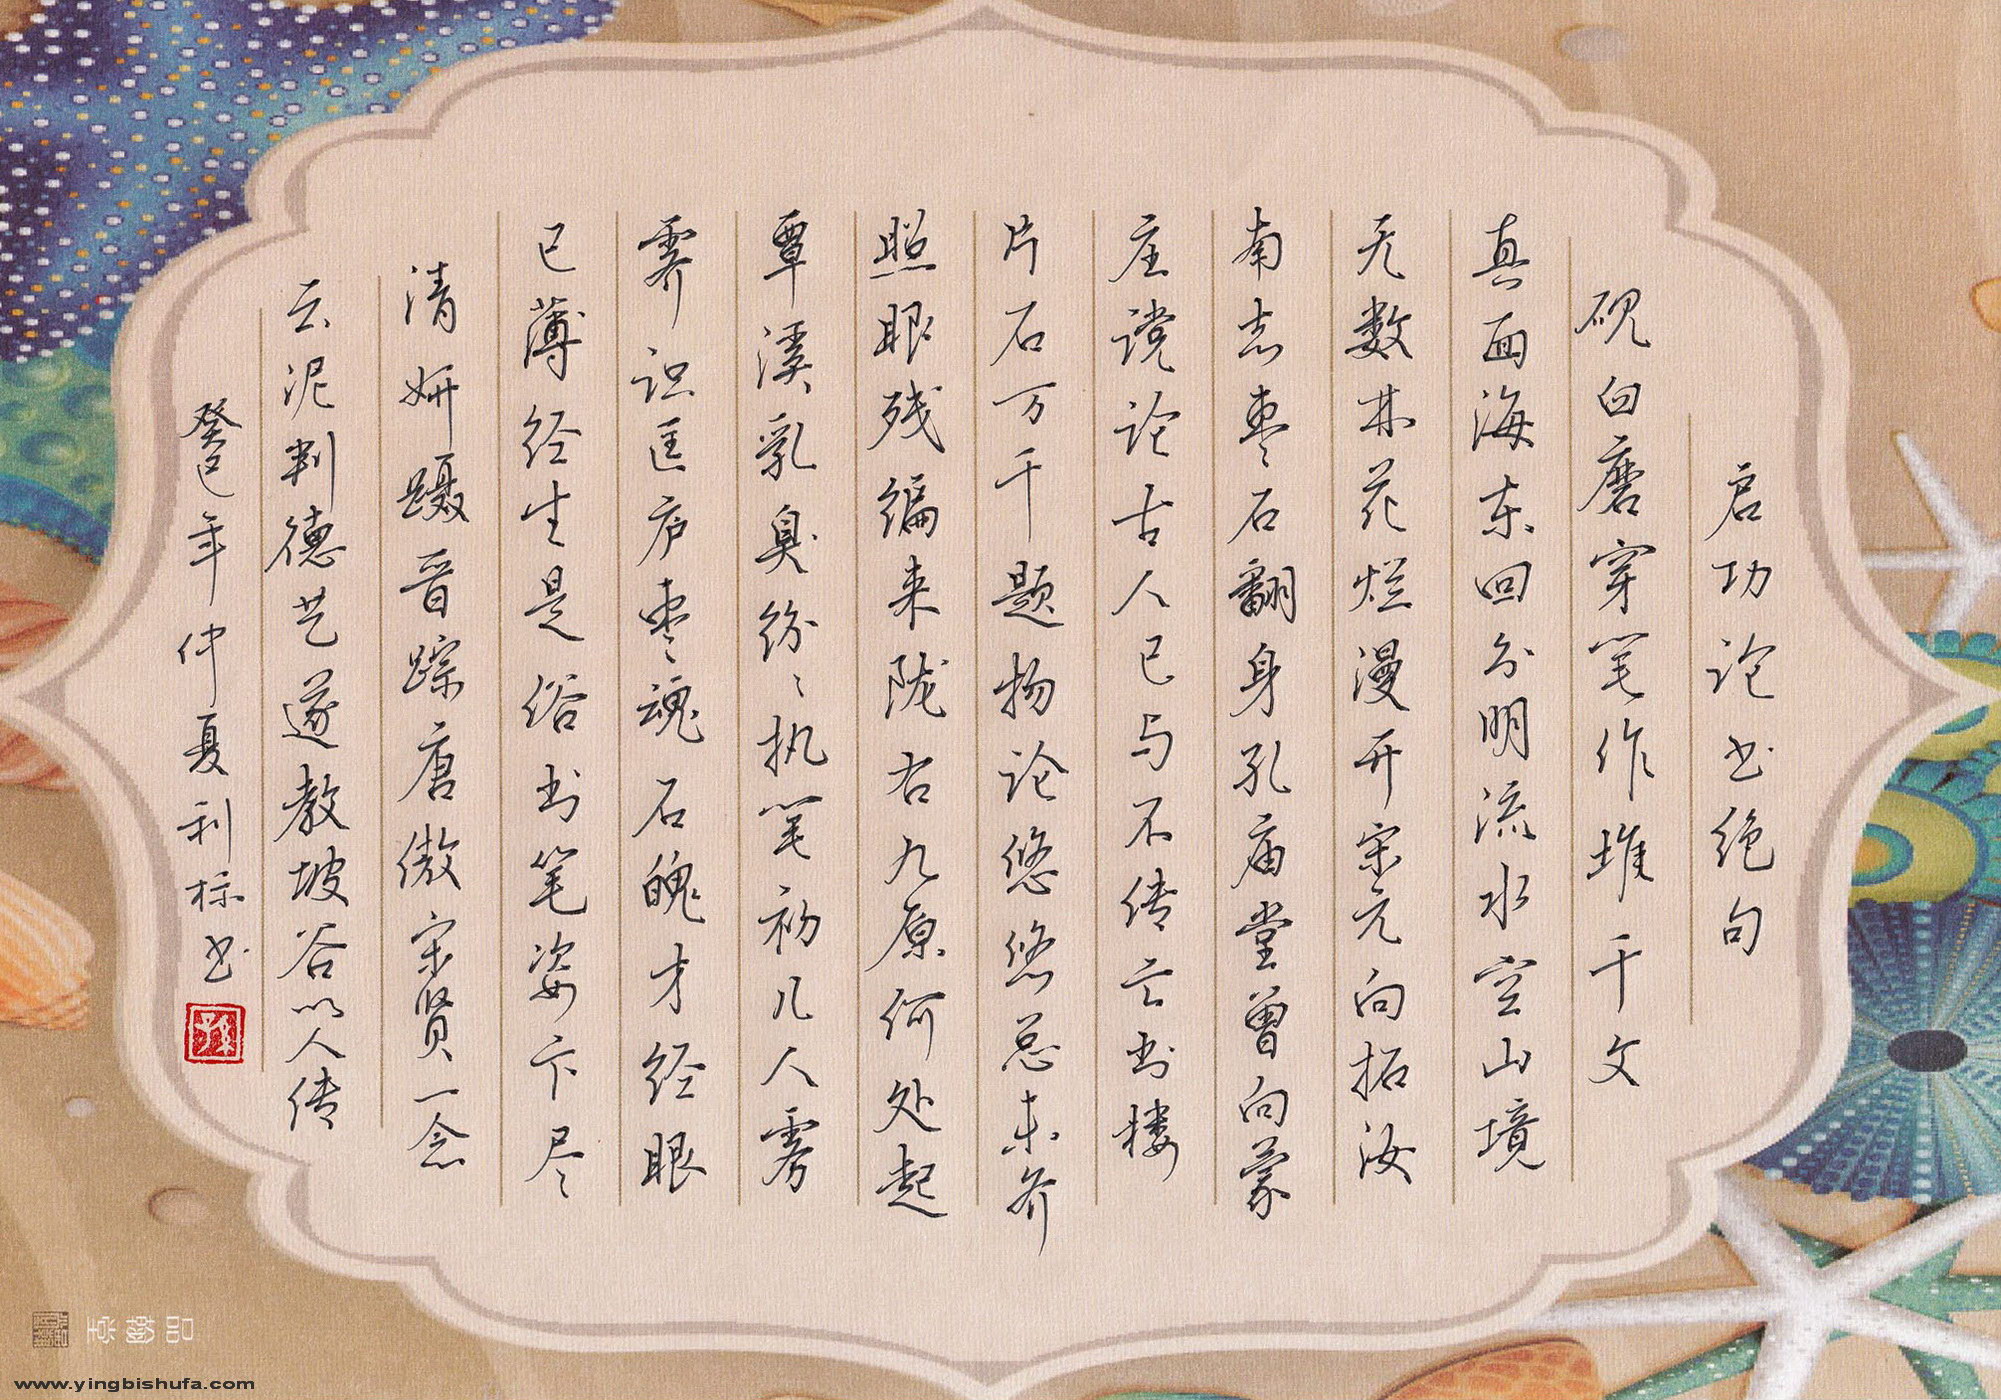 启功论书绝句
砚臼磨穿笔作堆千文
真面海东回分明流水空山境
无数林花烂漫开宋元向拓汝
南志枣石翻身孔庙堂曾向蒙
庄谠论古人已与不传亡书楼
片石万千题物论悠悠总未齐
照眼残编来陇右九原何处起
覃溪乳臭纷〻执笔初几人雾
霁识匡庐枣魂石魄才经眼
已薄经生是俗书笔姿京卞尽
清妍蹑晋踪唐傲宋贤一念
云泥判德艺遂教坡谷以人传
癸巳年仲夏利标书
www.yingbishufa.com